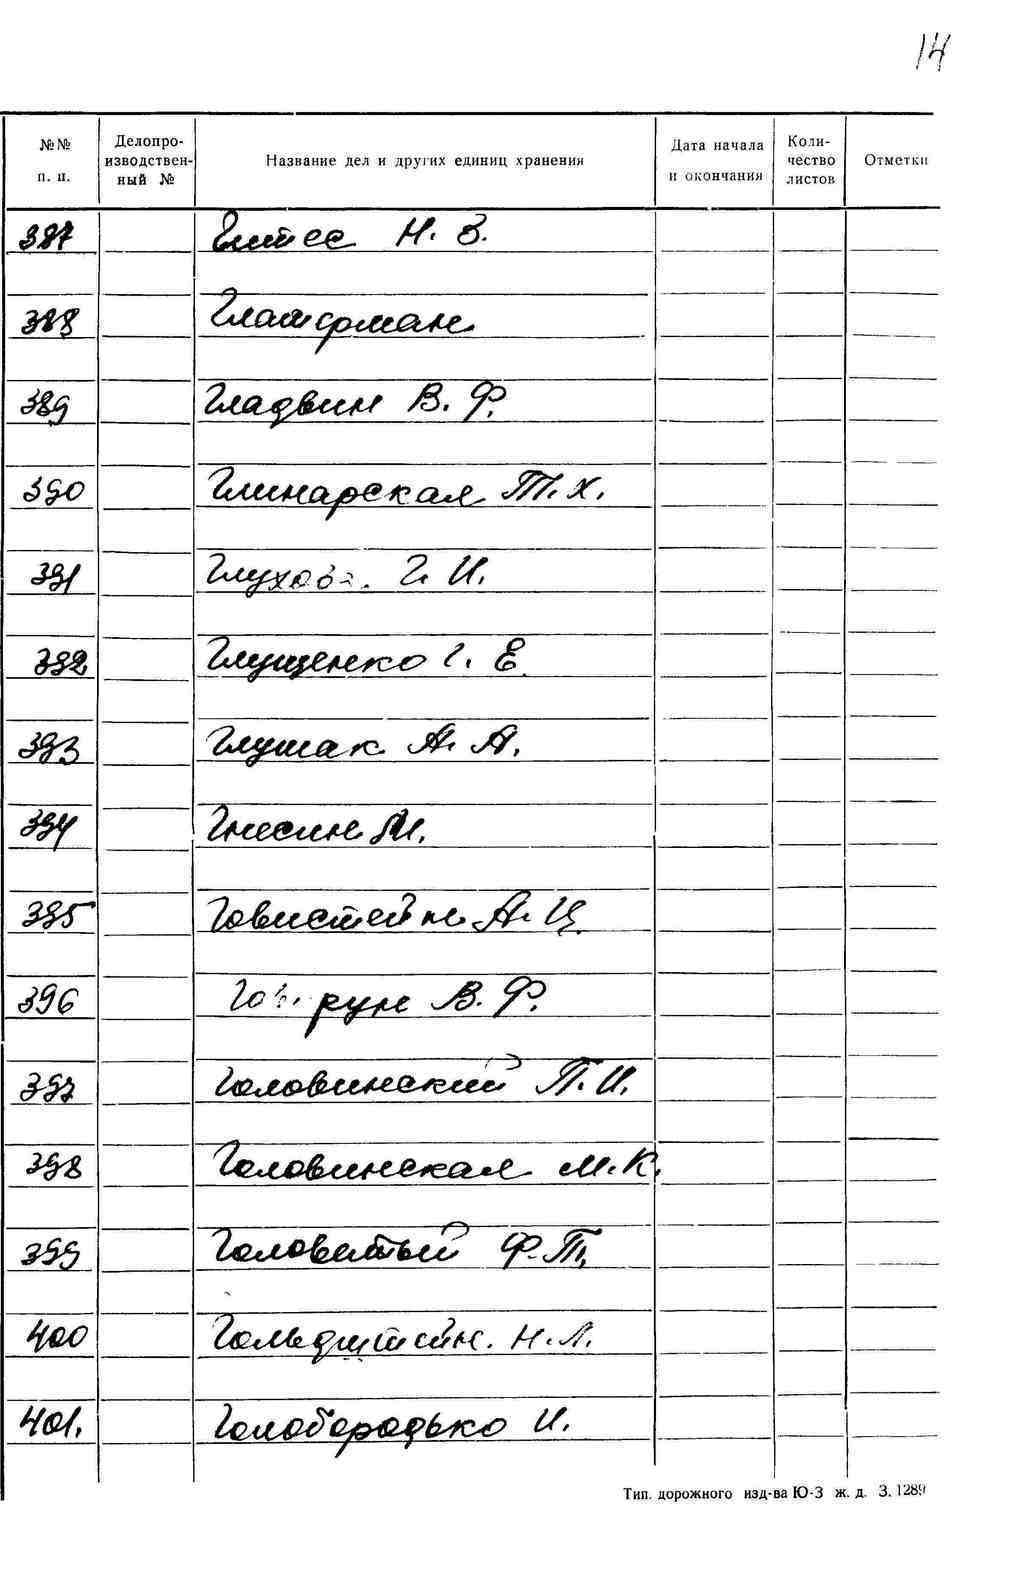 14
№№ п. п. Делопроизводственный № Название дел и других единиц хранения Дата начала и окончания Количество листов Отметки
387 Гитес Н. З.
388
389 Гладвин В. Ф.
390 Глинарская Т. Х.
391 Глухова Г. И.
392 Глущенко Г. Е.
393 Глушак А. А.
394 Гнесин М.
395 Говистейн А. Ц.
396 В. Ф.
397 Головинский П. И.
398 Головинская М. К.
399 Головатый Ф. П.
400 Гольдштейн. Н. Л.
401. Голобородько И.
Тип. дорожного изд-ва Ю-З ж. д. З. 1289